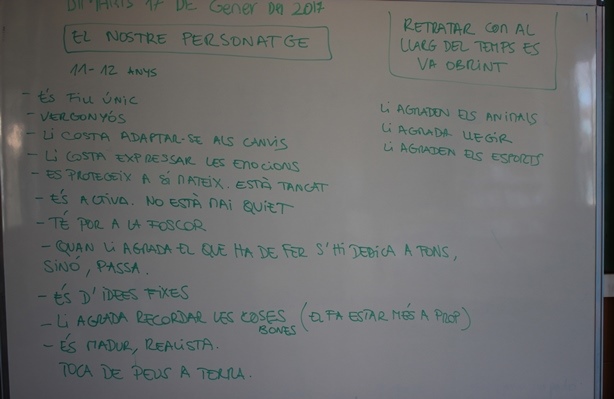 DIMARTS 17 DE GENER DEL 2017
EL NOSTRE PERSONATGE
11-12 ANYS
- ÉS FILL ÚNIC
- VERGONYÓS
- LI COSTA ADAPTAR-SE ALS CANVIS
- LI COSTA EXPRESSAR LES EMOCIONS
- ES PROTEGEIX A SÍ MATEIX. ESTÀ TANCAT
- ÉS ACTIVA. NO ESTÀ MAI QUIET
- TÉ POR A LA FOSCOR.
- QUAN LI AGRADA EL QUE HA DE FER S'HI DEDICA A FONS,
SINÓ, PASSA.
- ÉS D'IDEES FIXES
- LI AGRADA RECORDAR LES COSES (EL FA ESTAR MÉS A PROP)
BONES
- ÉS MADUR, REALISTA.
TOCA DE PEUS A TERRA.
RETRATAR COM AL
LLARG DEL TEMPS ES
VA OBRINT
LI AGRADEN ELS ANIMALS
LI AGRADA LLEGIR
LI AGRADEN ELS ESPORTS